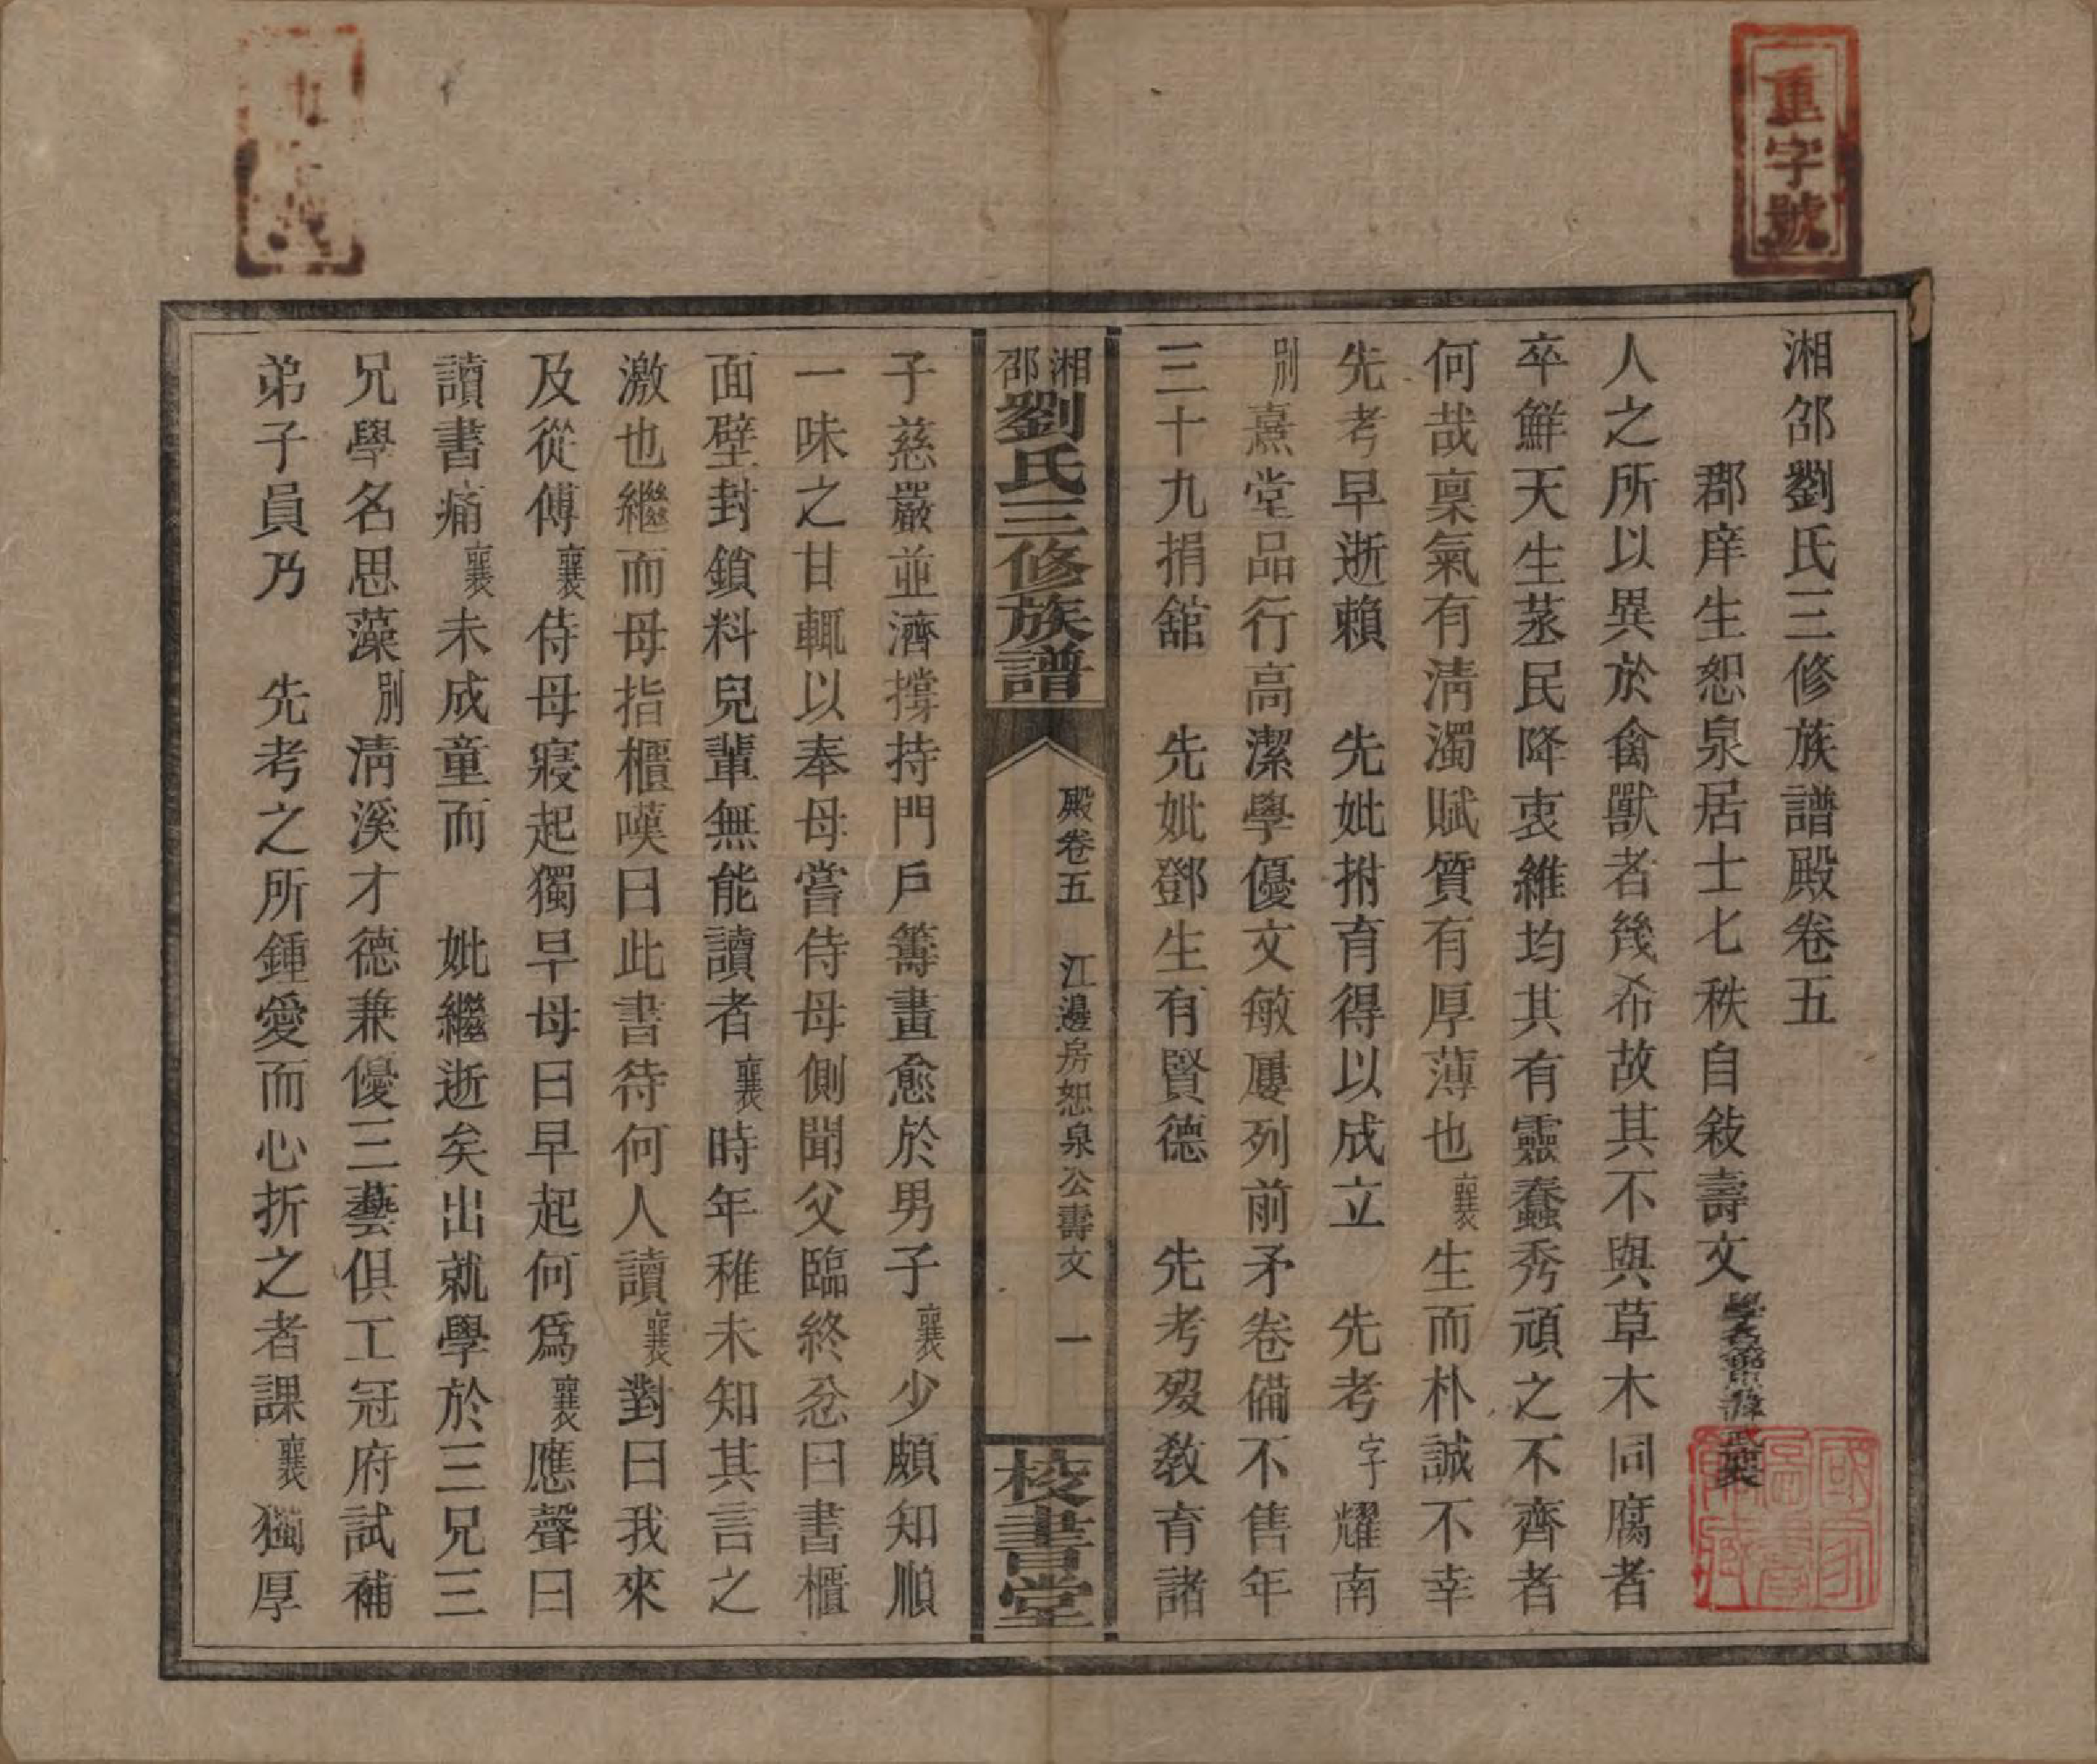 重字號
湘邵劉氏三修族譜殿卷五
郡庠生恕泉居士七秩自敍壽文
人之所以異於禽獸者幾希故其不與草木同腐者
卒鮮天生蒸民降衷維均其有靈蠢秀頑之不齊者
何哉稟氣有清濁賦質有厚薄也襄生而朴誠不幸
先考早逝賴　先妣拊育得以成立　先考字耀南
別熹堂品行高潔學優文敏屢列前矛卷備不售年
三十九捐舘　先妣鄧生有賢德　先考歿教育諸
湘邵劉氏三修族譜
殿卷五　江邊房恕泉公壽文　一
校書堂
子慈嚴並濟撐持門戶籌畫愈於男子襄少頗知順
一味之甘輒以奉母嘗侍母側聞父臨終忿曰書櫃
面壁封鎖料兒輩無能讀者襄時年稚未知其言之
激也繼而母指櫃嘆曰此書待何人讀襄對曰我來
及從傅襄侍母寢起獨早母曰早起何爲襄應聲曰
讀書痛襄未成童而　妣繼逝矣出就學於三兄三
兄學名思藻別清溪才德兼優三藝俱工冠府試補
弟子員乃　先考之所鍾愛而心折之者課襄獨厚